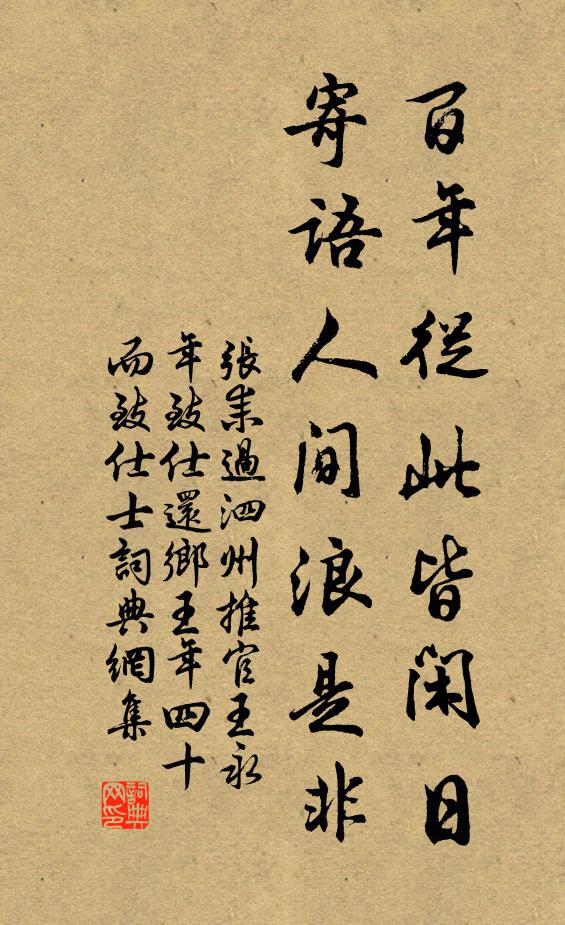 百年從此皆閑日
寄語人間浪是非
張耒過泗州推官王永
年致仕還鄉王年四十
而致仕士詞典網集
詞典网印